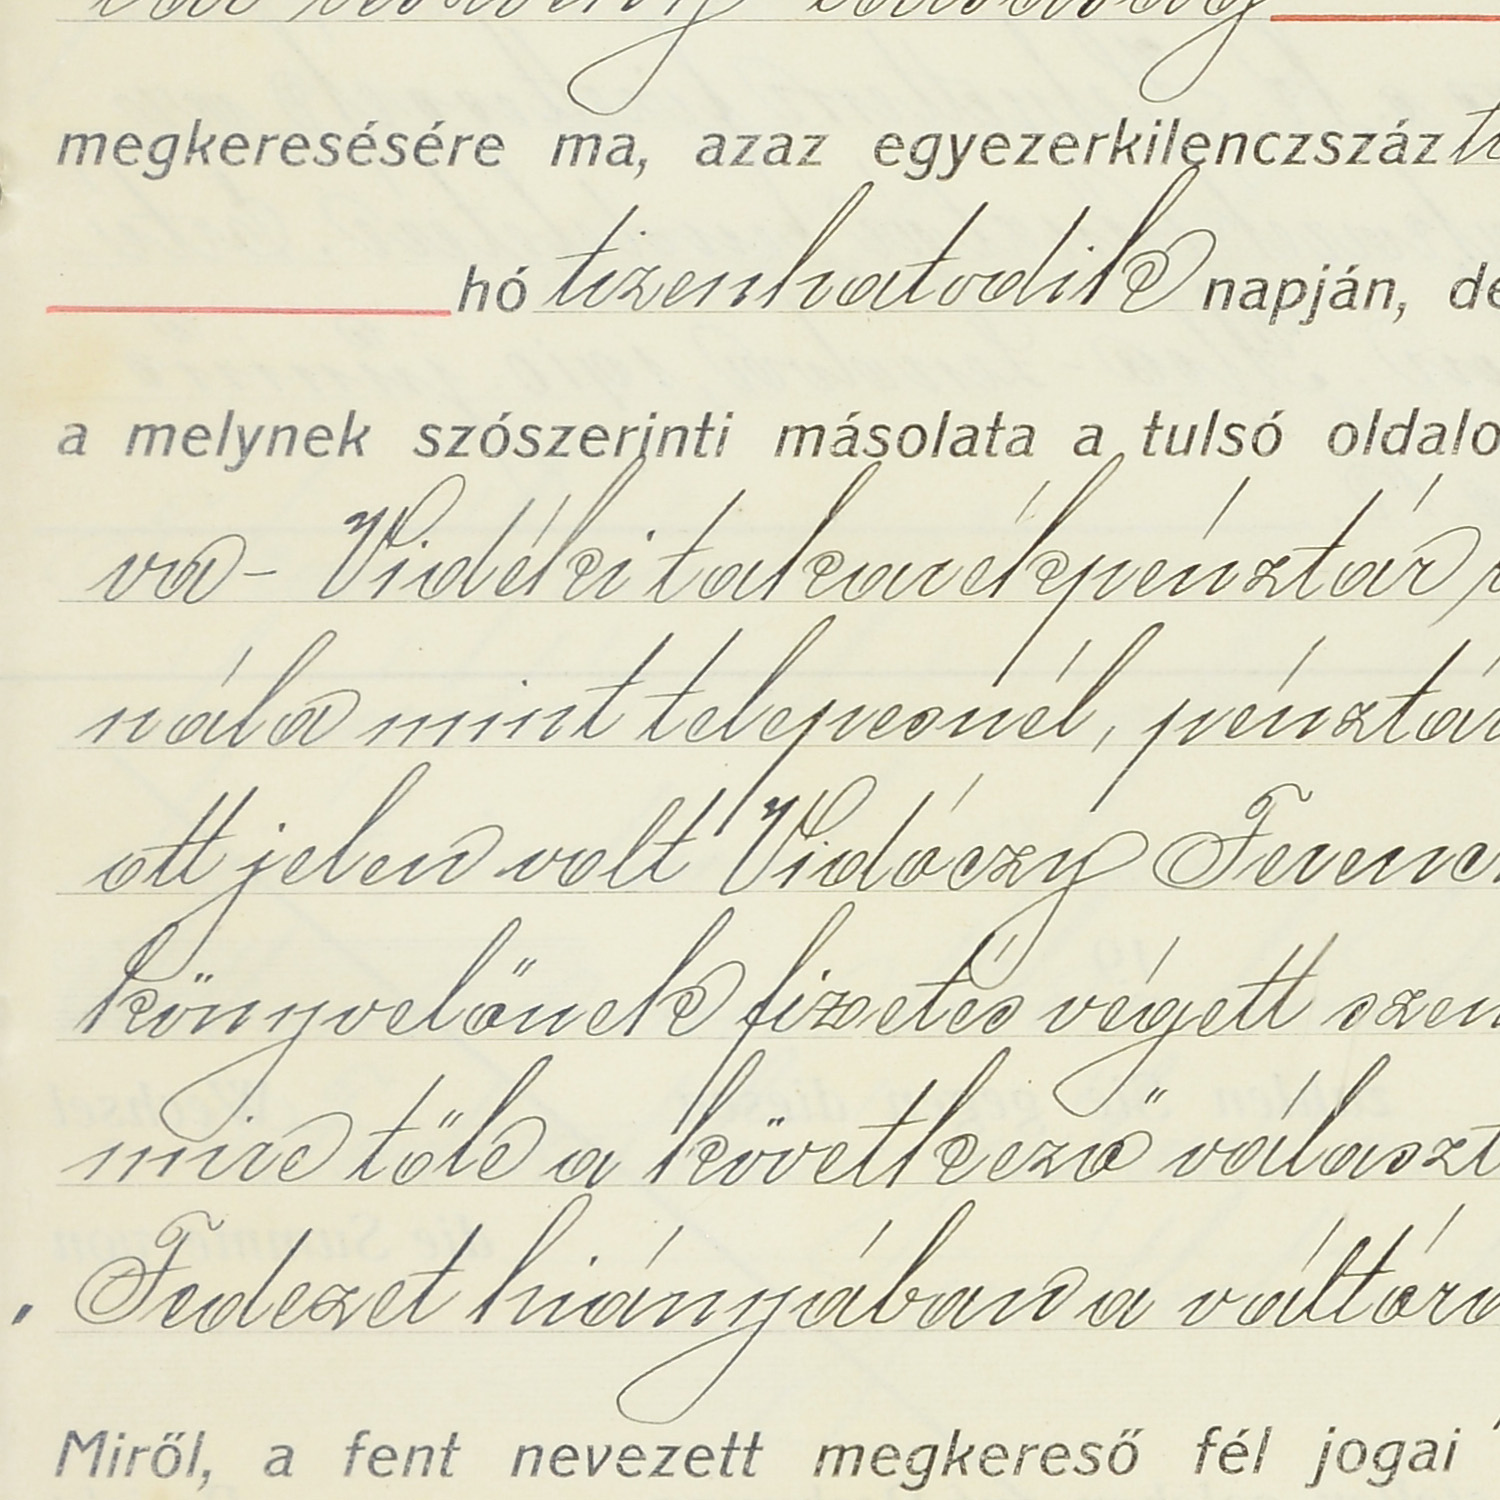 megkeresésére ma, azaz egyezerkilenczszáz
hó tizenhatodik napján, dé
a melynek szószerinti másolata a tulsó oldalo
va- Vidéki takarékpénztár r
nála mint telepesnél, pénztár
ott jelen volt Vidóczy Ferenc
könyvelőnek fizetés végett szem
mire tőle a következő választ
„Fedezet hiányában a váltóra
Miről, a fent nevezett megkereső fél jogai